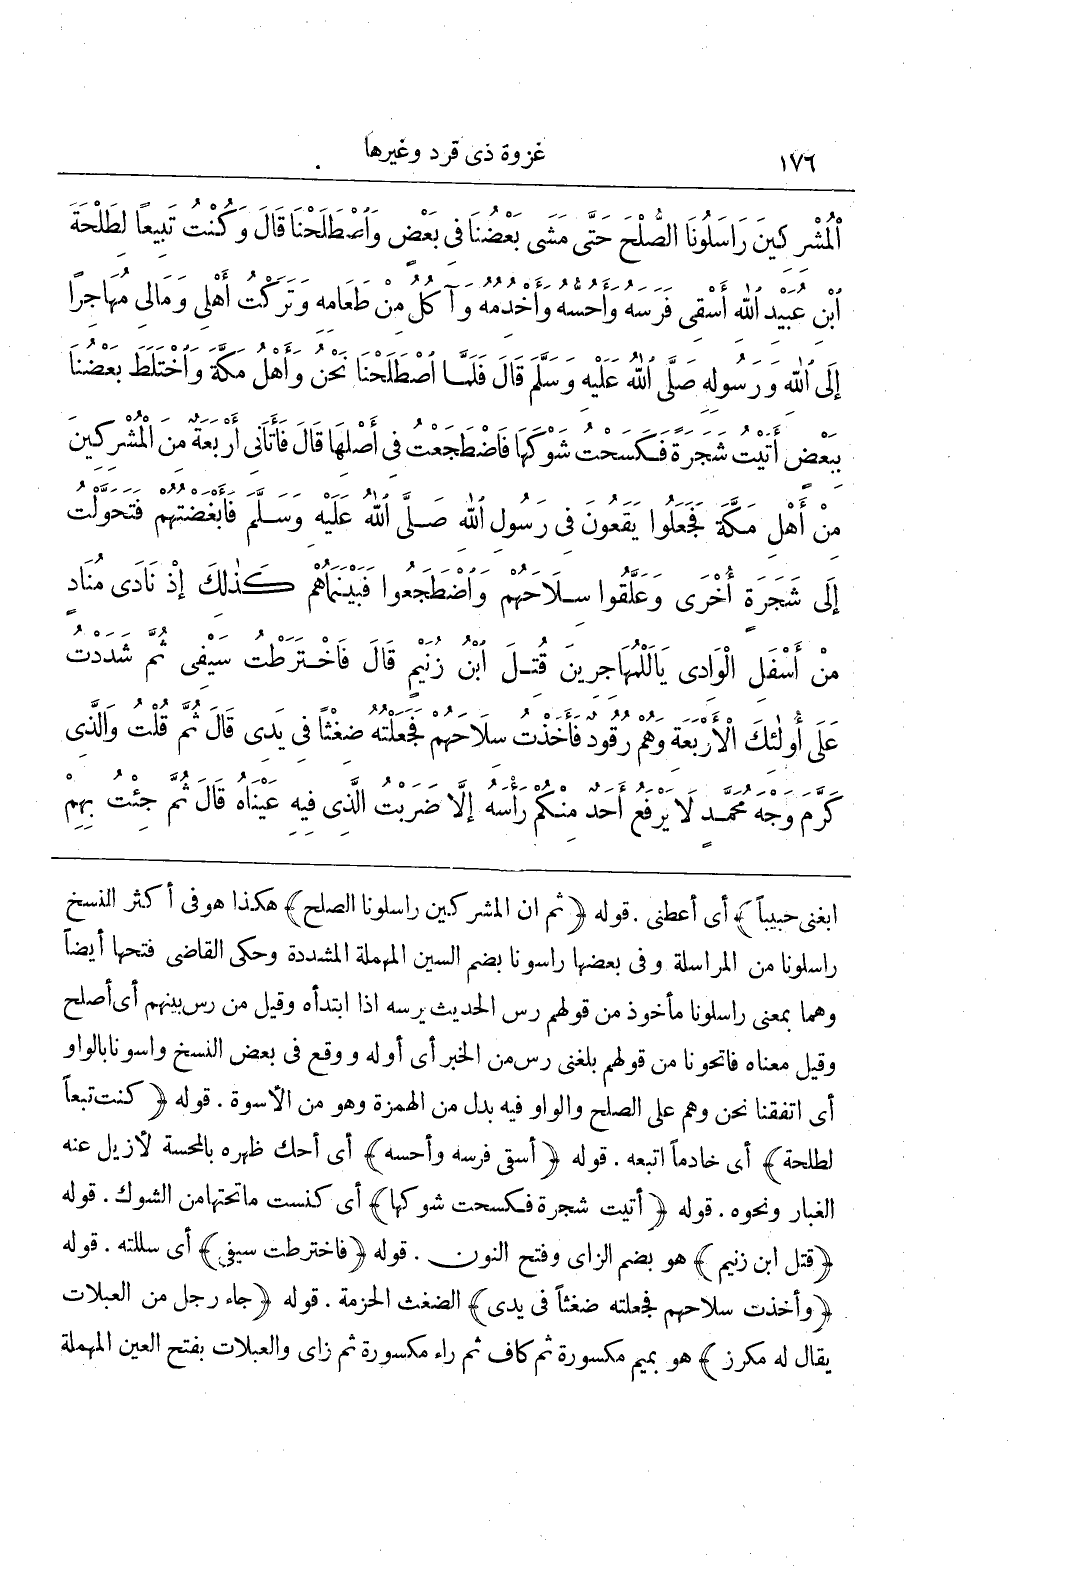 ١٧٦
غزوة ذى قرد وغيرها
الْمُشْرِكِينَ رَاسَلُونَا الصُّلْحَ حَتَّى مَشَى بَعْضُنَا فِى بَعْضٍ وَاصْطَلَحْنَا قَالَ وَكُنْتُ تَبِيعًا لِطَلْحَةَ
ابْنِ عُبَيْدِ اللهِ أَسْقِى فَرَسَهُ وَأَحُسُّهُ وَأَخْدُمُهُ وَآكُلُ مِنْ طَعَامِهِ وَتَرَكْتُ أَهْلِى وَمَالِى مُهَاجِرًا
إِلَى اللهِ وَرَسُولِهِ صَلَّى اللهُ عَلَيْهِ وَسَلَّمَ قَالَ فَلَمَّا اصْطَلَحْنَا نَحْنُ وَأَهْلُ مَكَّةَ وَاخْتَلَطَ بَعْضُنَا
بِبَعْضٍ أَتَيْتُ شَجَرَةً فَكَسَحْتُ شَوْكَهَا فَاضْطَجَعْتُ فِى أَصْلِهَا قَالَ فَأَتَانِى أَرْبَعَةٌ مِنَ الْمُشْرِكِينَ
مِنْ أَهْلِ مَكَّةَ فَجَعَلُوا يَقَعُونَ فِى رَسُولِ اللهِ صَلَّى اللهُ عَلَيْهِ وَسَلَّمَ فَأَبْغَضْتُهُمْ فَتَحَوَّلْتُ
إِلَى شَجَرَةٍ أُخْرَى وَعَلَّقُوا سِلَاحَهُمْ وَاضْطَجَعُوا فَبَيْنَمَاهُمْ كَذٰلِكَ إِذْ نَادَى مُنَادٍ
مِنْ أَسْفَلِ الْوَادِى يَالَلْمُهَاجِرِينَ قُتِلَ ابْنُ زُنَيْمٍ قَالَ فَاخْتَرَطْتُ سَيْفِى ثُمَّ شَدَدْتُ
عَلَى أُولٰئِكَ الْأَرْبَعَةِ وَهُمْ رُقُودٌ فَأَخَذْتُ سِلَاحَهُمْ فَجَعَلْتُهُ ضِغْثًا فِى يَدِى قَالَ ثُمَّ قُلْتُ وَالَّذِى
كَرَّمَ وَجْهَ مُحَمَّدٍ لَا يَرْفَعُ أَحَدٌ مِنْكُمْ رَأْسَهُ إِلَّا ضَرَبْتُ الَّذِى فِيهِ عَيْنَاهُ قَالَ ثُمَّ جِئْتُ بِهِمْ
ابغنى حبيباً﴾ أى أعطنى . قوله ﴿ثم ان المشركين راسلونا الصلح﴾ هكذا هو فى أكثر النسخ
راسلونا من المراسلة وفى بعضها راسونا بضم السين المهملة المشددة وحكى القاضى فتحها أيضاً
وهما بمعنى راسلونا مأخوذ من قولهم رس الحديث يرسه اذا ابتدأه وقيل من رس بينهم أى أصلح
وقيل معناه فاتحونا من قولهم بلغنى رس من الخبر أى أوله ووقع فى بعض النسخ واسونا بالواو
أى اتفقنا نحن وهم على الصلح والواو فيه بدل من الهمزة وهو من الأسوة . قوله ﴿كنت تبعاً
لطلحة﴾ أى خادماً اتبعه . قوله ﴿أسقى فرسه وأحسه﴾ أى أحك ظهره بالمحسة لأزيل عنه
الغبار ونحوه . قوله ﴿أتيت شجرة فكسحت شوكها﴾ أى كنست ماتحتها من الشوك . قوله
﴿قتل ابن زنيم﴾ هو بضم الزاى وفتح النون . قوله ﴿فاخترطت سيفى﴾ أى سللته . قوله
﴿وأخذت سلاحهم فجعلته ضغثاً فى يدى﴾ الضغث الحزمة . قوله ﴿جاء رجل من العبلات
يقال له مكرز﴾ هو بميم مكسورة ثم كاف ثم راء مكسورة ثم زاى والعبلات بفتح العين المهملة